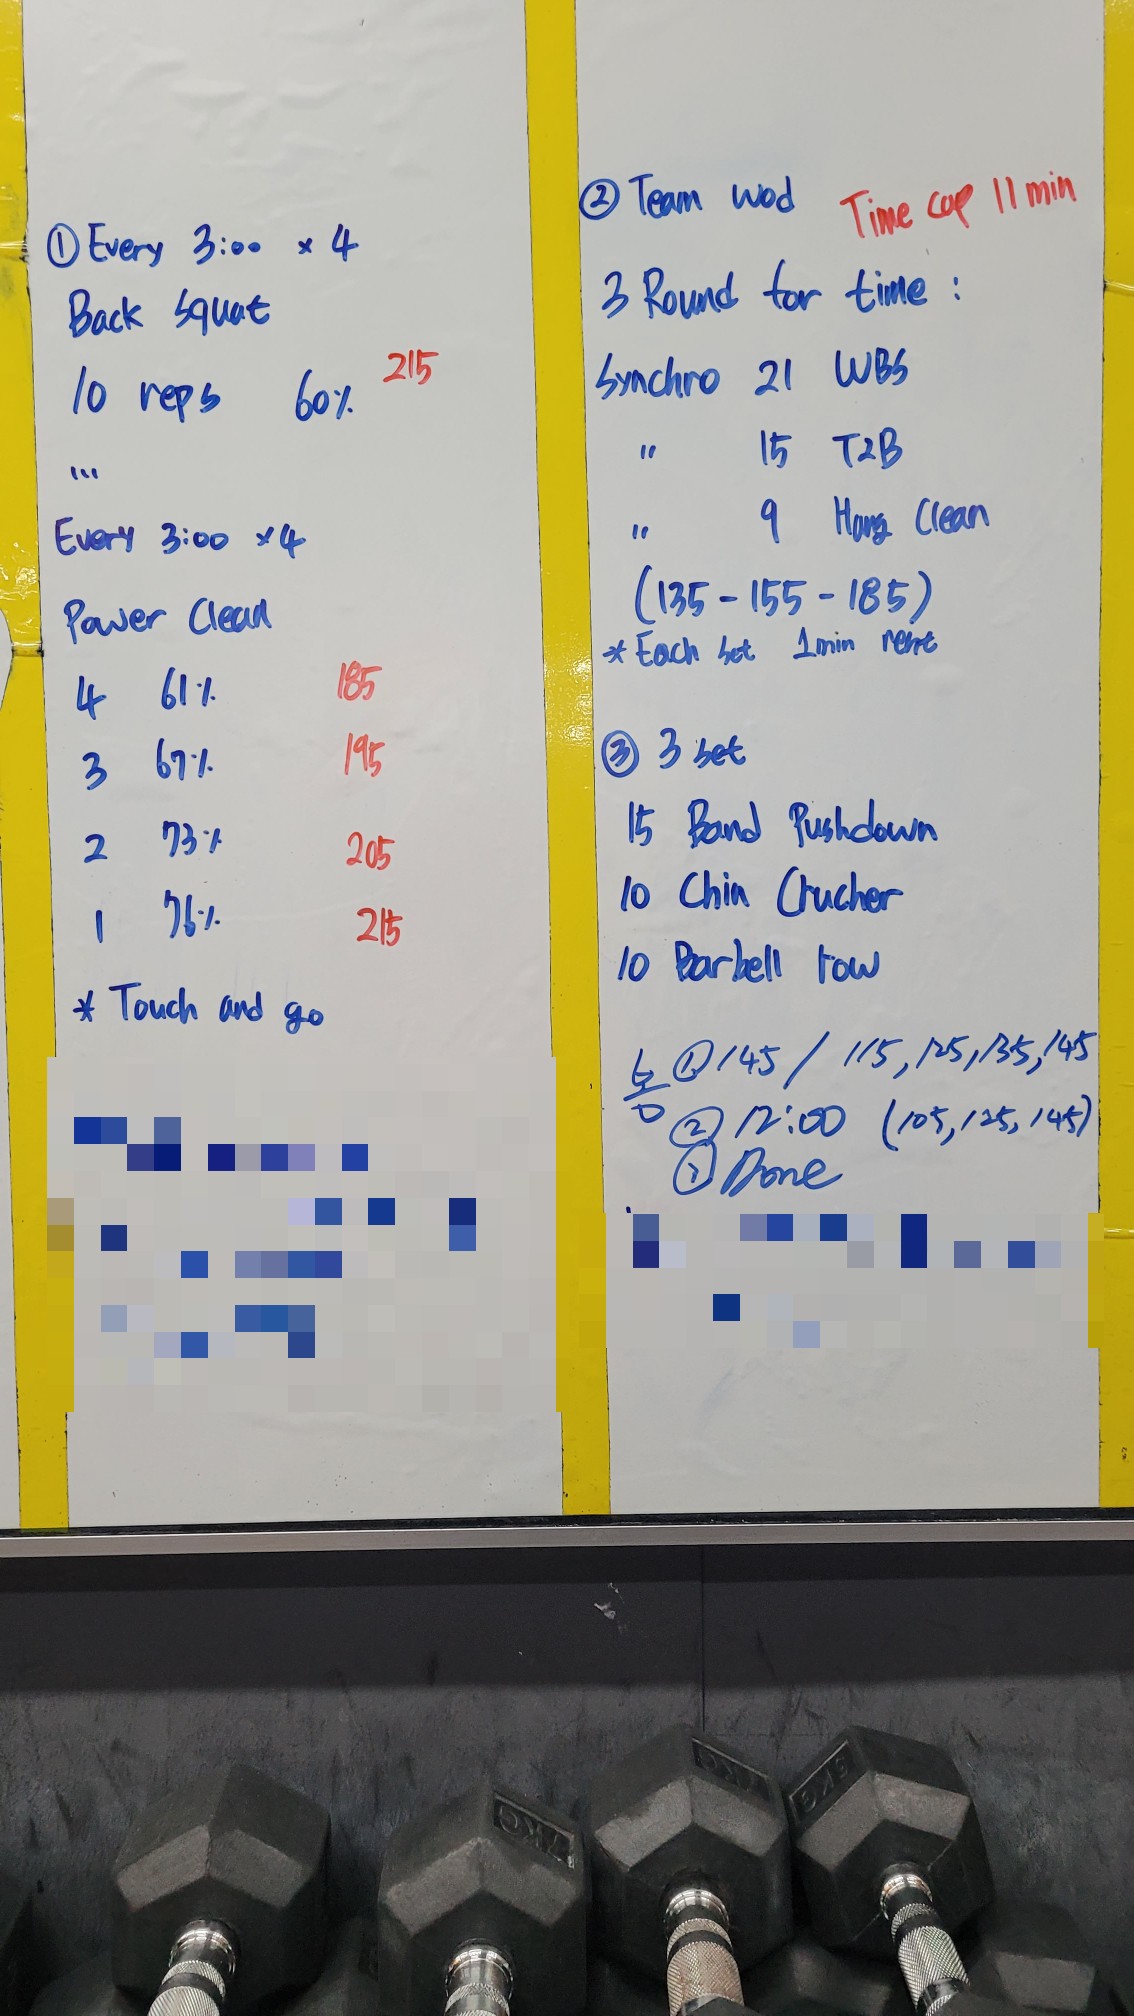 ① Every 3:00 × 4
Back Squat
10 reps 60% 215
"'
Every 3:00 ×4
Power Clean
4 61% 185
3 67% 195
2 73% 205
1 76% 215
* Touch and go
② Team wod Time cap 11 min
3 Round for time :
Synchro 21 WBS
" 15 T2B
" 9 Hang Clean
(135-155-185)
* Each set 1min rest
③ 3 set
15 Band Pushdown
10 Chin Crucher
10 Barbell row
① 145 / 115, 125, 135, 145
② 12:00 (105, 125, 145)
③ Done